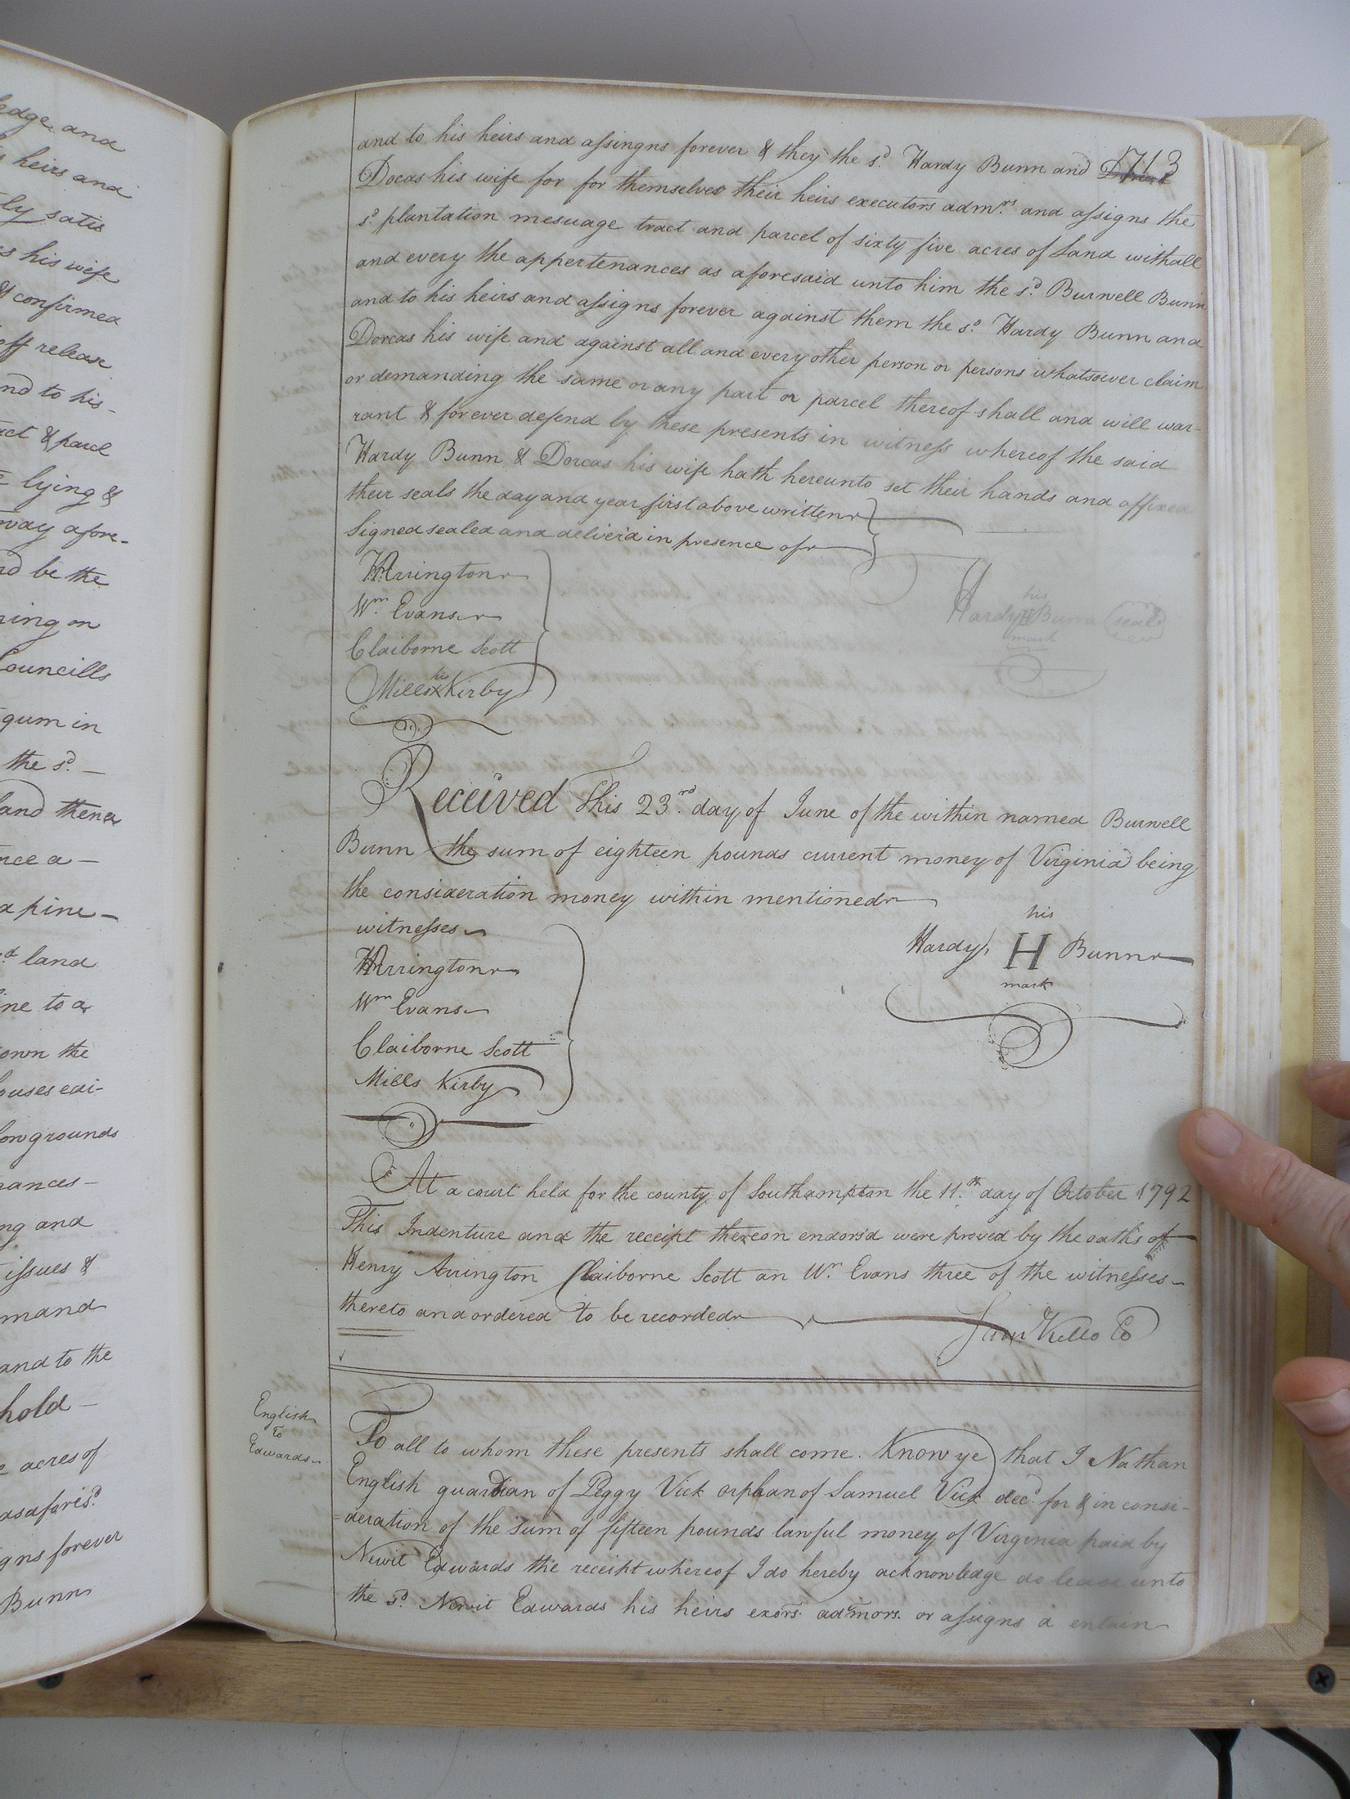 ledge and
s heirs and
tly satis
as his wife
& confirmed
off release
and to his
act & parcel
lying &
way afore-
nd be the
ning on
Councills
gum in
the sd. —
land thence
nce a —
a pine —
sd land
ine to a
down the
houses edi-
low grounds
nances —
ng and
issues &
mand
and to the
hold —
acres of
as aforesd.
igns forever
Bunn
713
and to his heirs and assingns forever & they the sd. Hardy Bunn and
Docas his wife for for themselves their heirs executors admrs. and assigns the
sd. plantation mesuage tract and parcel of sixty five acres of Land withall
and every the appertenances as aforesaid unto him the sd. Burwell Bunn
and to his heirs and assigns forever against them the sd. Hardy Bunn and
Dorcas his wife and against all and every other person or persons whatsoever claim
or demanding the same or any part or parcel thereof shall and will war-
rant & forever defend by these presents in witness whereof the said
Hardy Bunn & Dorcas his wife hath hereunto set their hands and affixed
their seals the day and year first above written
Signed sealed and deliver'd in presence of
HArrington
Wm. Evans
Claiborne Scott
his
Mills x Kirby
his
Hardy H Bunn (seal)
mark
Received This 23rd. day of June of the within named Burwell
Bunn the sum of eighteen pounds current money of Virginia being
the consideration money within mentioned
witnesses
HArrington
Wm Evans
Claiborne Scott
Mills Kirby
his
Hardy H Bunn
mark
At a court held for the county of Southampton the 11th. day of October 1792
This Indenture and the receipt thereon endors'd were proved by the oaths of
Henry Arrington Claiborne Scott an Wm. Evans three of the witnesses
thereto and ordered to be recorded
Saml Kello CC
English
to
Edwards
To all to whom these presents shall come. Know ye that I Nathan
English guardian of Peggy Vick orphan of Samuel Vick decd for & in consi-
deration of the sum of fifteen pounds lawful money of Virginia paid by
Newit Edwards the receipt whereof I do hereby acknowledge do lease unto
the sd. Newit Edwards his heirs exors. admors. or assigns a